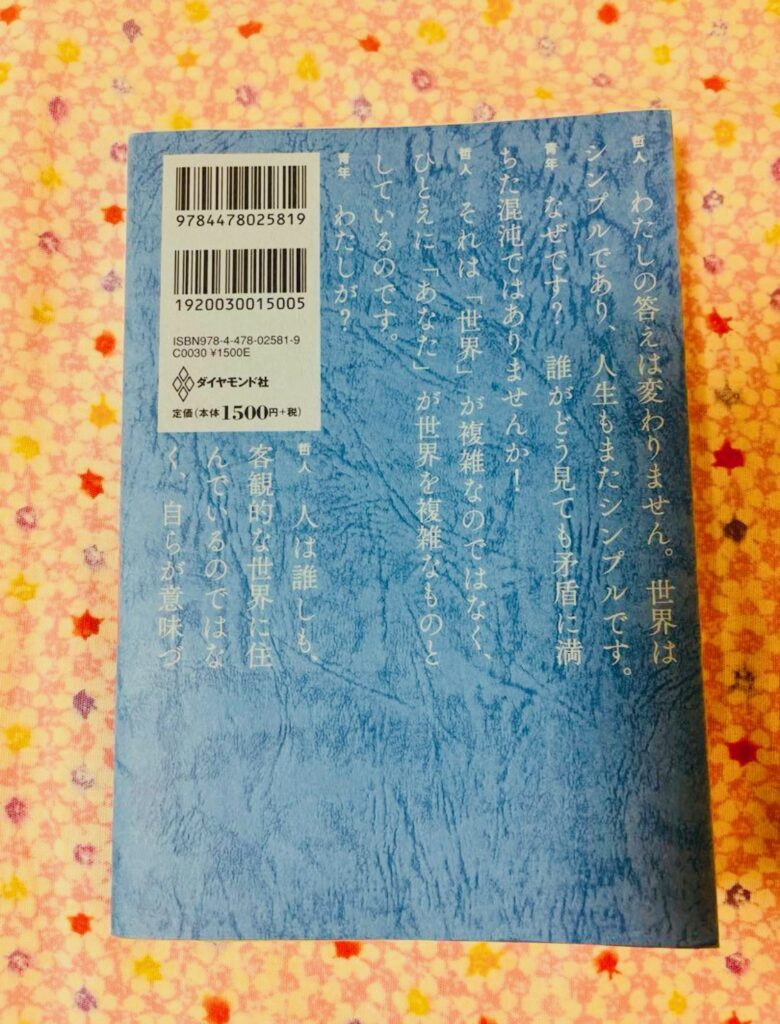 哲人 わたしの答えは変わりません。世界は
シンプルであり、人生もまたシンプルです。
青年 なぜです? 誰がどう見ても矛盾に満
ちた混沌ではありませんか!
哲人 それは「世界」が複雑なのではなく、
ひとえに「あなた」が世界を複雑なものと
しているのです。
青年 わたしが?
哲人 人は誰しも、
客観的な世界に住
んでいるのではな
く、自らが意味づ
9784478025819
1920030015005
ISBN978-4-478-02581-9
C0030 ¥1500E
ダイヤモンド社
定価(本体1500円+税)